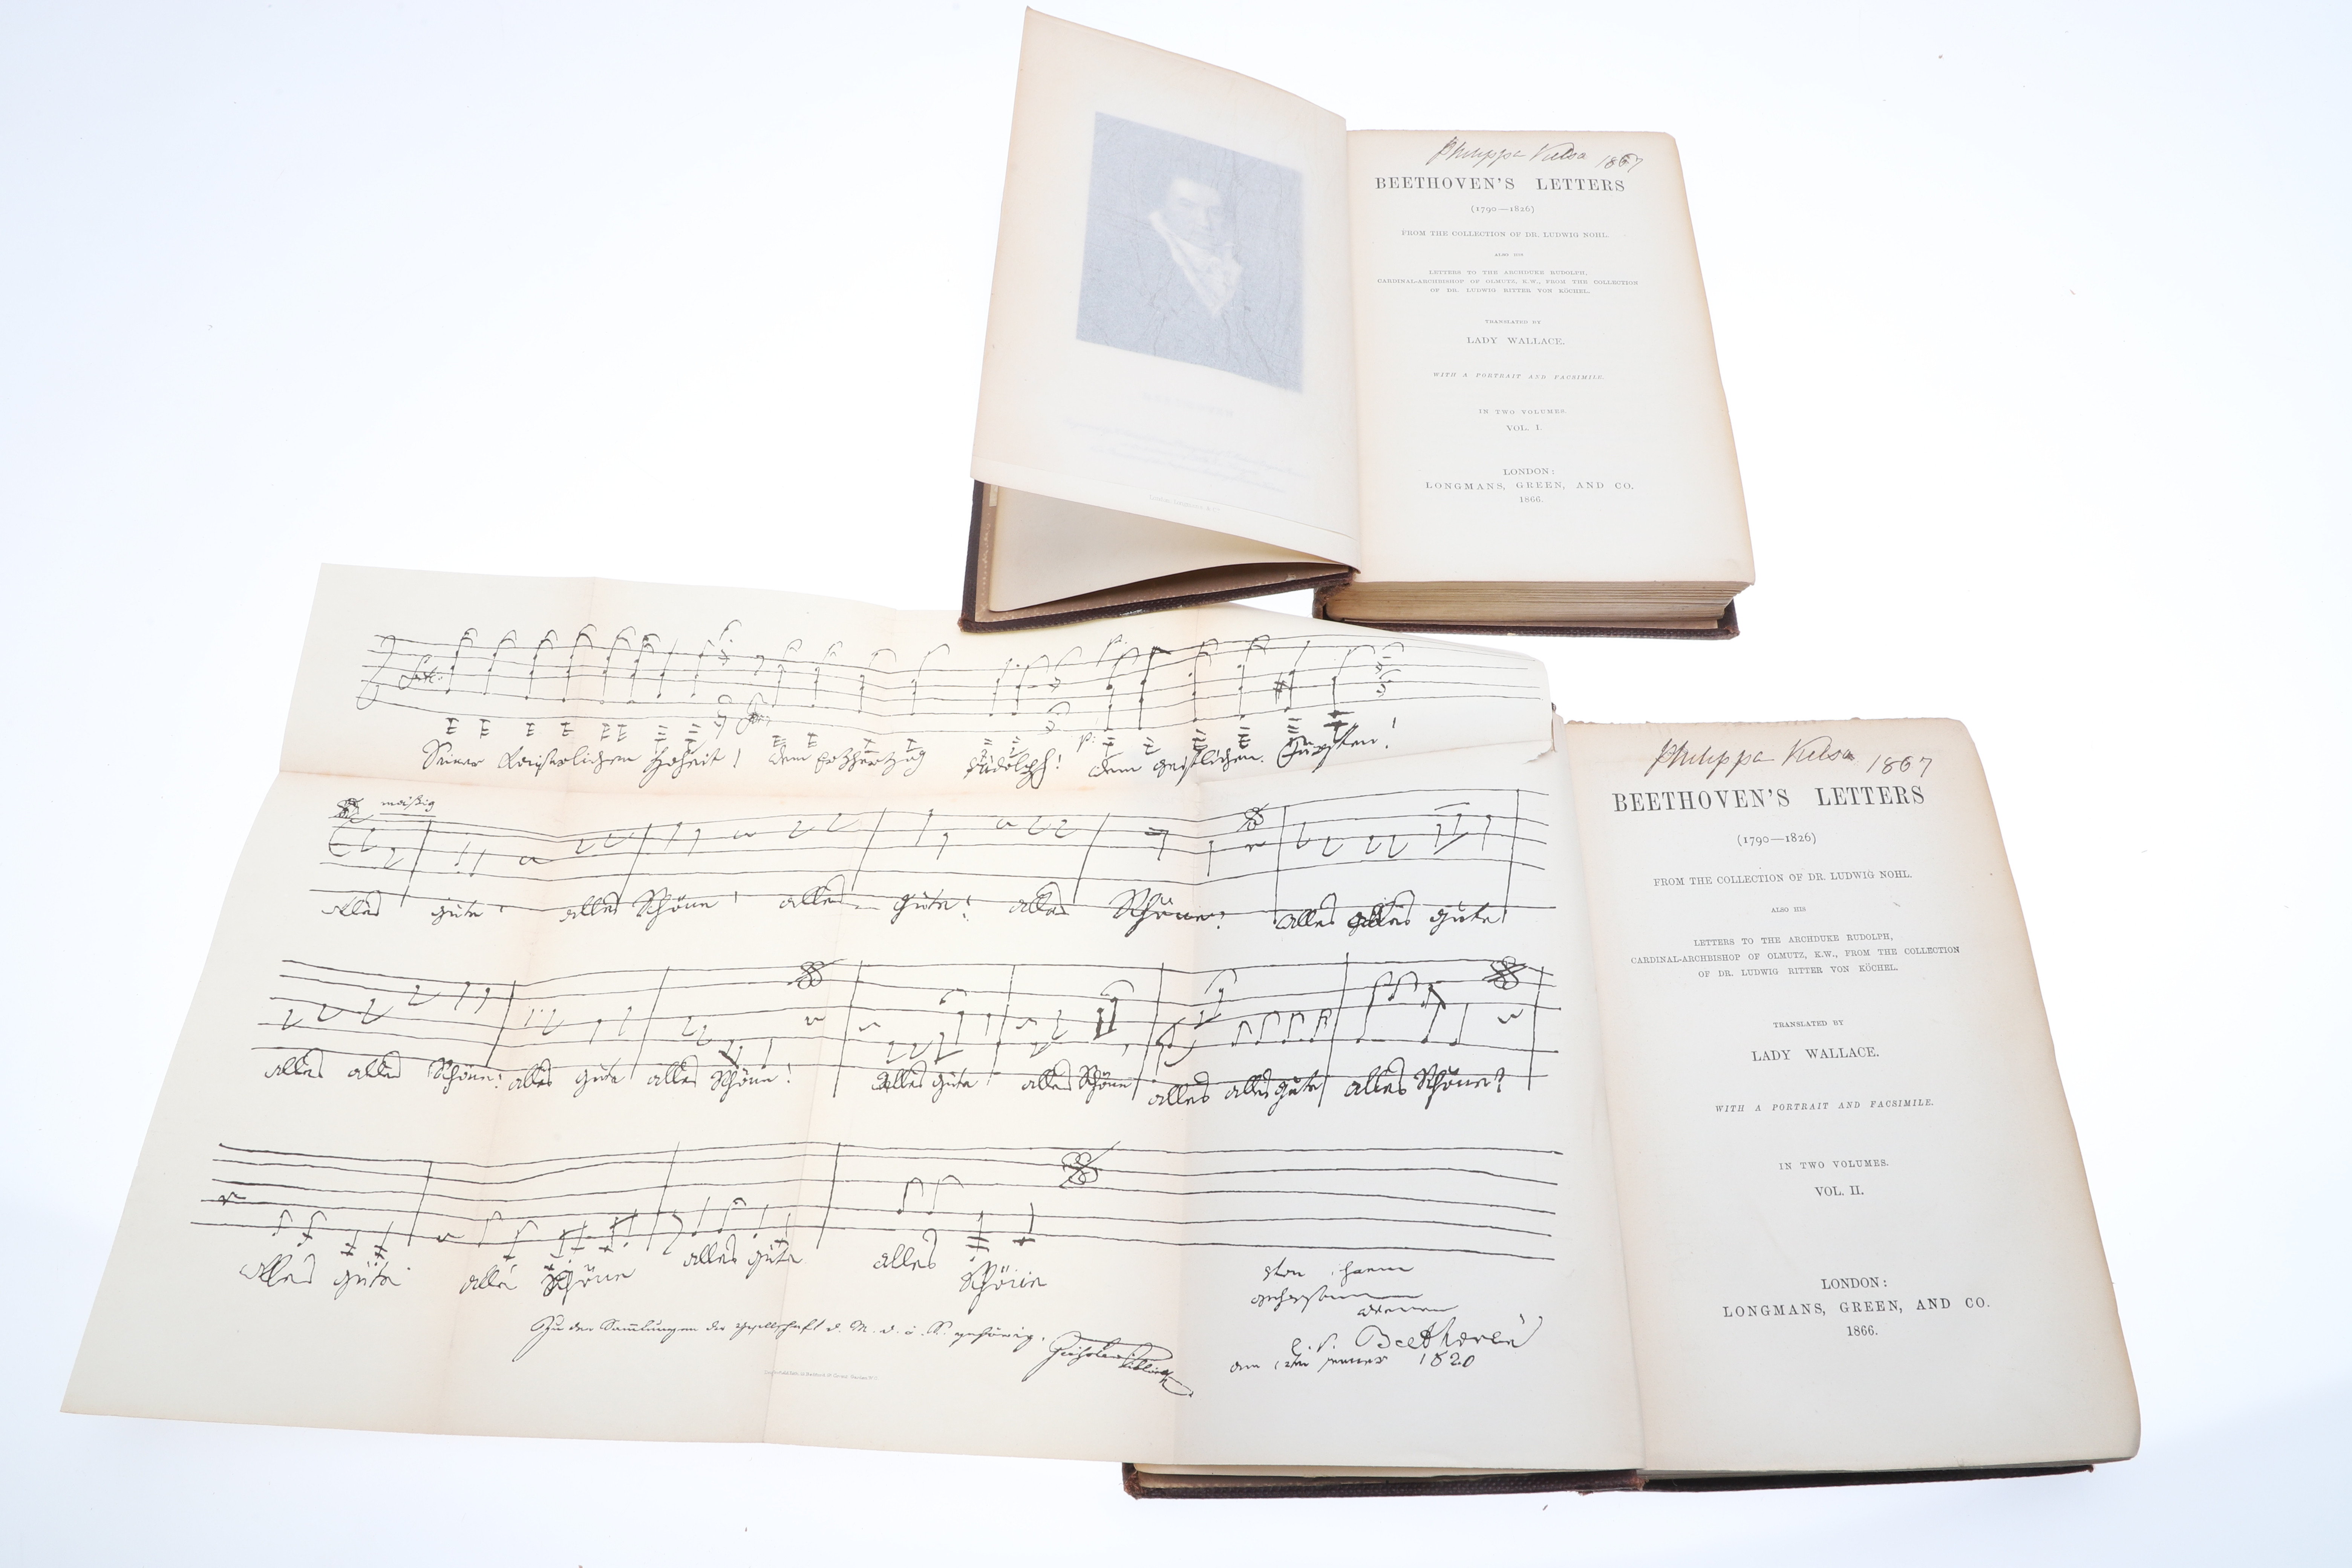 1867
BEETHOVEN'S LETTERS
(1790—1826)
FROM THE COLLECTION OF DR. LUDWIG NOHL.
ALSO HIS
LETTERS TO THE ARCHDUKE RUDOLPH,
CARDINAL-ARCHBISHOP OF OLMUTZ, K.W., FROM THE COLLECTION
OF DR. LUDWIG RITTER VON KÖCHEL.
TRANSLATED BY
LADY WALLACE.
WITH A PORTRAIT AND FACSIMILE.
IN TWO VOLUMES.
VOL. I.
LONDON:
LONGMANS, GREEN, AND CO.
1866.
Seiner Kaiserlichen Hoheit! dem Erzherzog Rudolph! dem geistlichen Fürsten!
mäßig
alles gute! alles Schöne! alles gute! alles Schöne! alles alles gute!
alles alles Schöne! alles gute alles Schöne! alles gute alles Schöne! alles alles gute alles Schöne!
alles gute alles Schöne alles gute alles Schöne
Zu den Sammlungen der Gesellschaft d. M. d. ö. K. gehörig.
Beethoven
1820
Philippa 1867
BEETHOVEN'S LETTERS
(1790—1826)
FROM THE COLLECTION OF DR. LUDWIG NOHL.
ALSO HIS
LETTERS TO THE ARCHDUKE RUDOLPH,
CARDINAL-ARCHBISHOP OF OLMUTZ, K.W., FROM THE COLLECTION
OF DR. LUDWIG RITTER VON KÖCHEL.
TRANSLATED BY
LADY WALLACE.
WITH A PORTRAIT AND FACSIMILE.
IN TWO VOLUMES.
VOL. II.
LONDON:
LONGMANS, GREEN, AND CO.
1866.